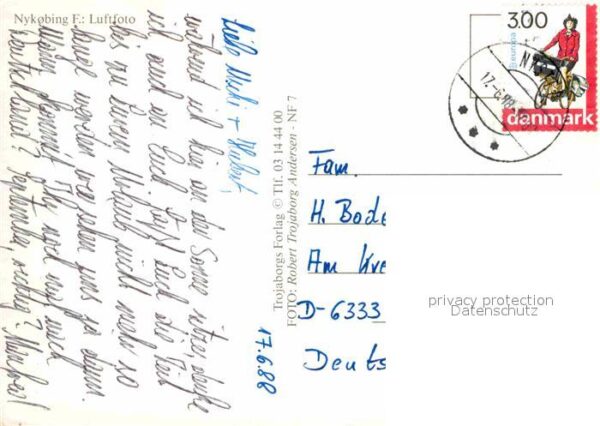 Nykøbing F.: Luftfoto
Liebe Michi + Hubert,
während ich hier an der Sonne sitze, denke
ich auch an Euch. Lasst Euch die Zeit
bis zu Eurem Urlaub nicht mehr so
lange werden, wir sehen uns ja dann.
Wann kommt Ihr noch mal nach
Deutschland? September, richtig?
17.6.88
Trojaborgs Forlag © Tlf. 03 14 44 00
FOTO: Robert Trojaborg Andersen - NF 7
3.00
europa
danmark
17.-6.88
Fam.
H. Bode
Am Kre
D-6333
Deuts
privacy protection
Datenschutz